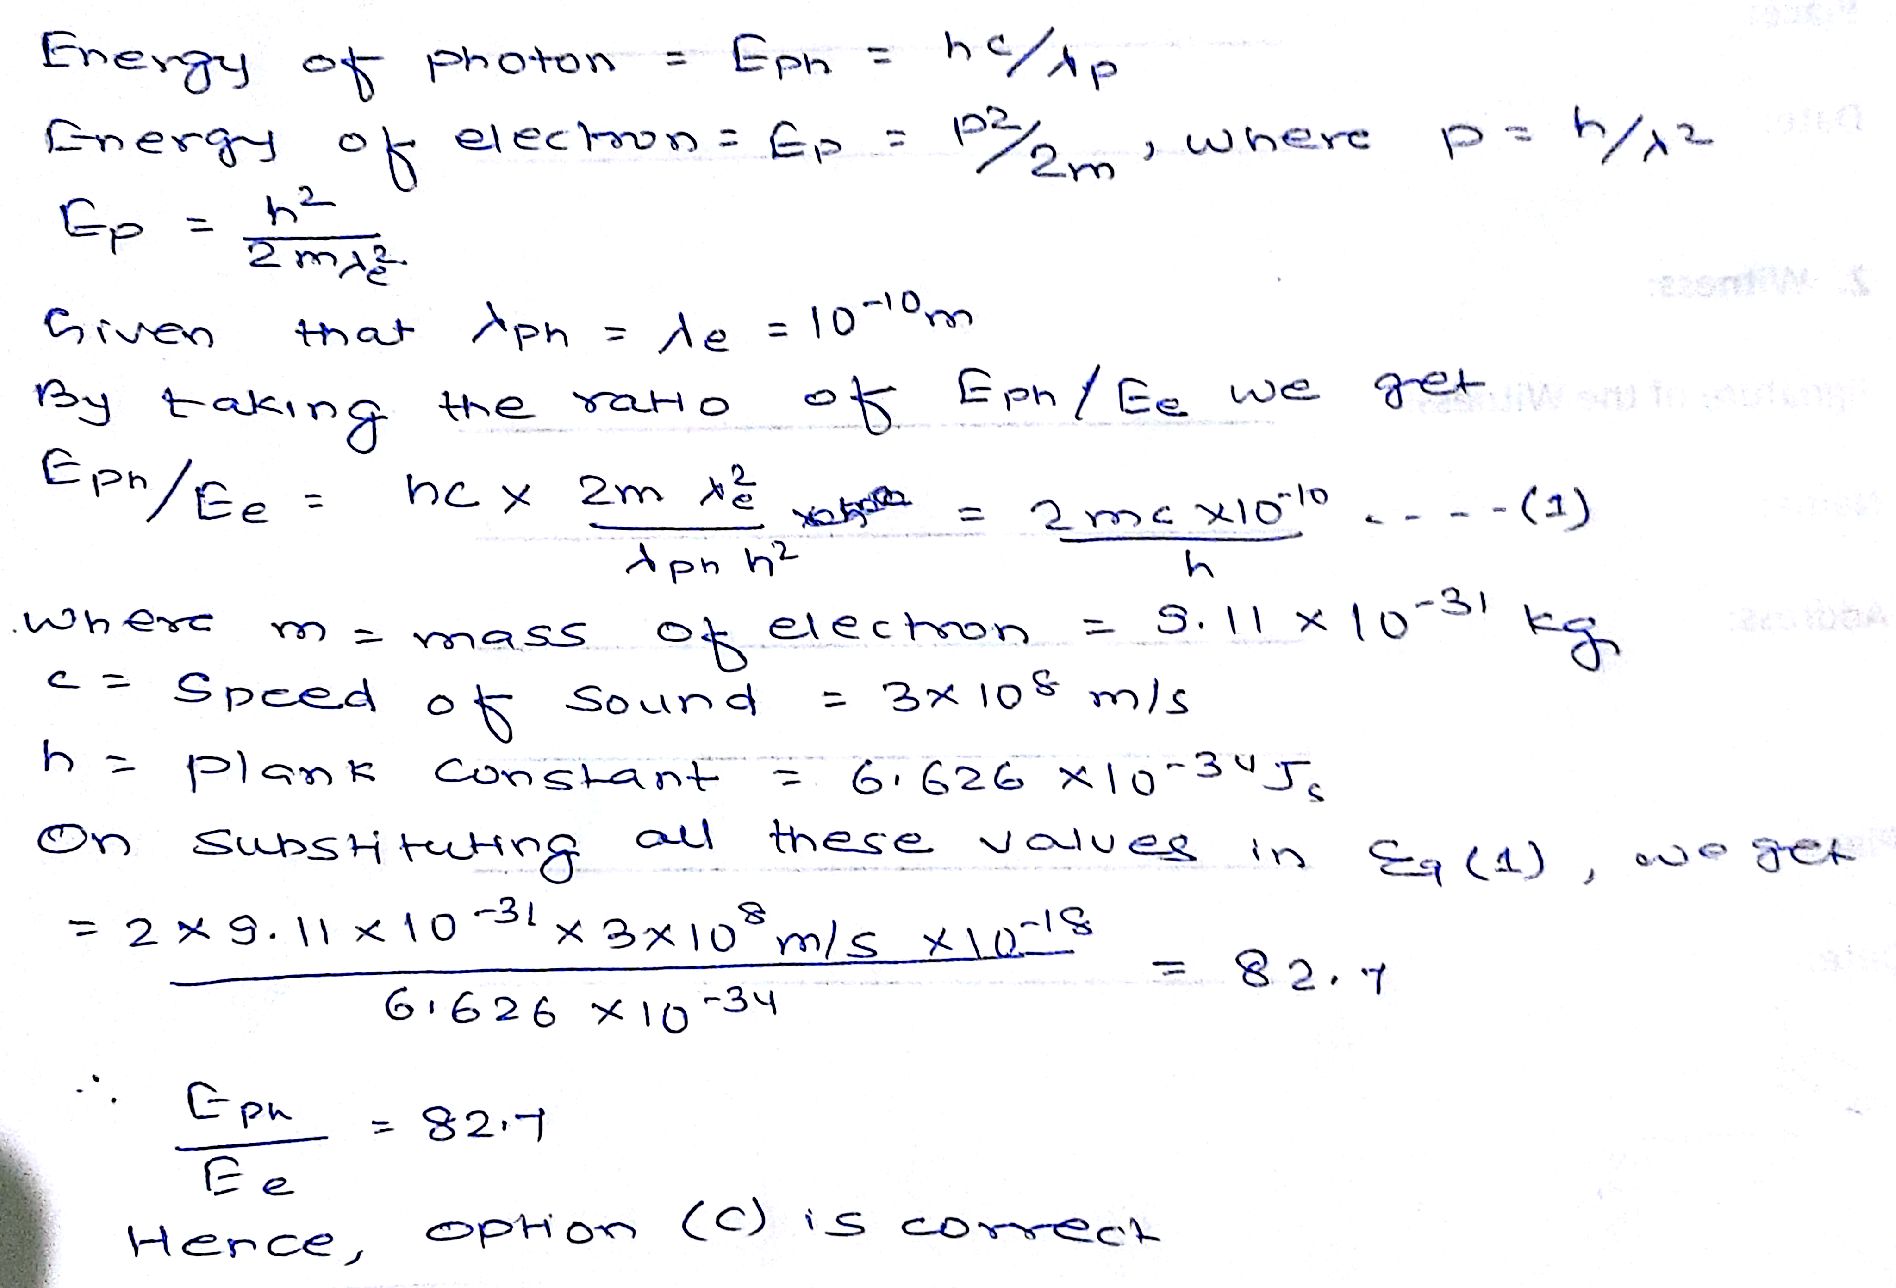 Energy of photon = Eph = hc/λp
Energy of electron = Ep = p²/2m , where p = h/λ2
Ep = h²/2mλe²
Given that λph = λe = 10⁻¹⁰m
By taking the ratio of Eph/Ee we get
Eph/Ee = hc x 2m λe² / λph h² = 2mc x10⁻¹⁰ / h - - - - (1)
where m = mass of electron = 9.11 x 10⁻³¹ kg
c = Speed of sound = 3x10⁸ m/s
h = plank constant = 6.626 x10⁻³⁴Js
On substituting all these values in Eq (1), we get
= 2 x 9.11 x 10⁻³¹ x 3x10⁸ m/s x10⁻¹⁸ / 6.626 x 10⁻³⁴ = 82.7
∴ Eph/Ee = 82.7
Hence, option (C) is correct